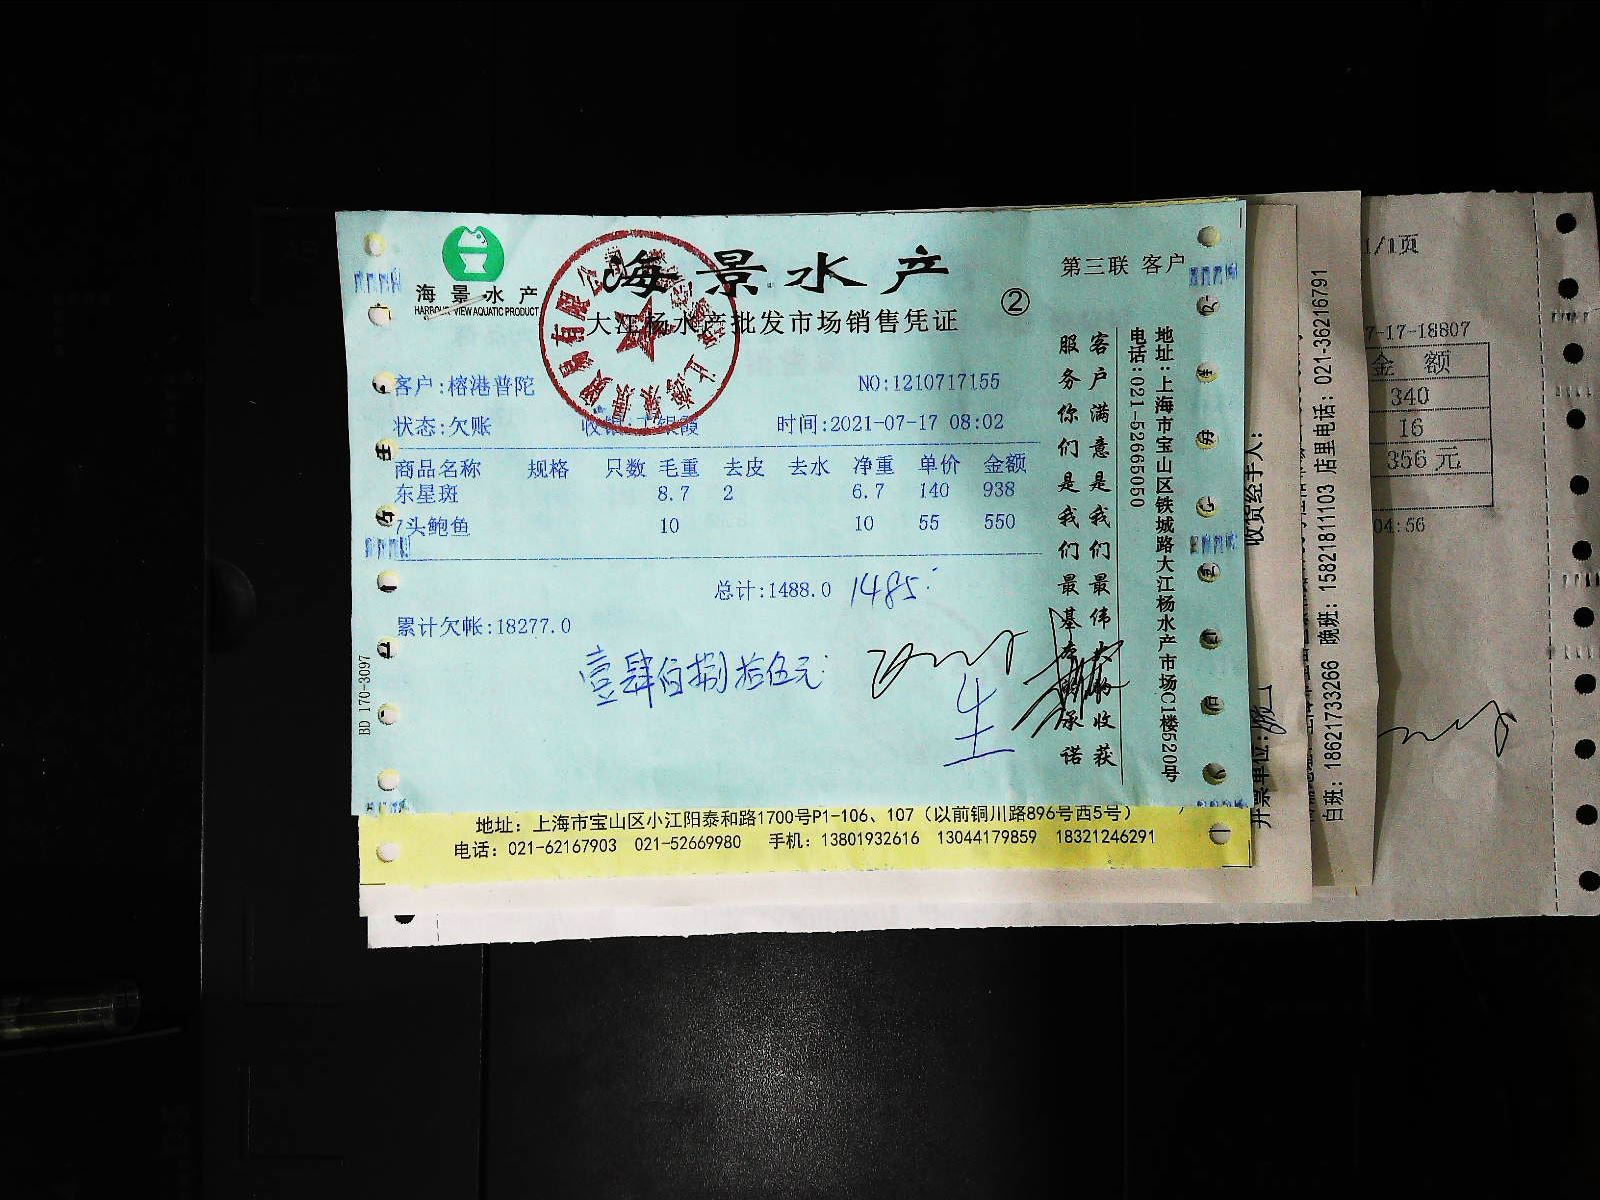 海景水产
HARBOUR VIEW AQUATIC PRODUCT
海景水产
大江杨水产批发市场销售凭证
②
第三联 客户
客户:榕港普陀
NO:1210717155
状态:欠账
时间:2021-07-17 08:02
商品名称 规格 只数 毛重 去皮 去水 净重 单价 金额
东星斑 8.7 2 6.7 140 938
7头鲍鱼 10 10 55 550
总计:1488.0 1485
累计欠帐:18277.0
壹肆佰捌拾伍元
生
BD 170-3097
客户满意是我们最伟大的收获
服务你们是我们最基本的承诺
地址:上海市宝山区铁城路大江杨水产市场C1楼520号
电话:021-52665050
地址：上海市宝山区小江阳泰和路1700号P1-106、107（以前铜川路896号西5号）
电话：021-62167903 021-52669980 手机：13801932616 13044179859 18321246291
收货经手人:
开票单位:
白班：18621733266 晚班：15821811103 店里电话：021-36216791
1/1页
7-17-18807
金 额
340
16
356 元
04:56